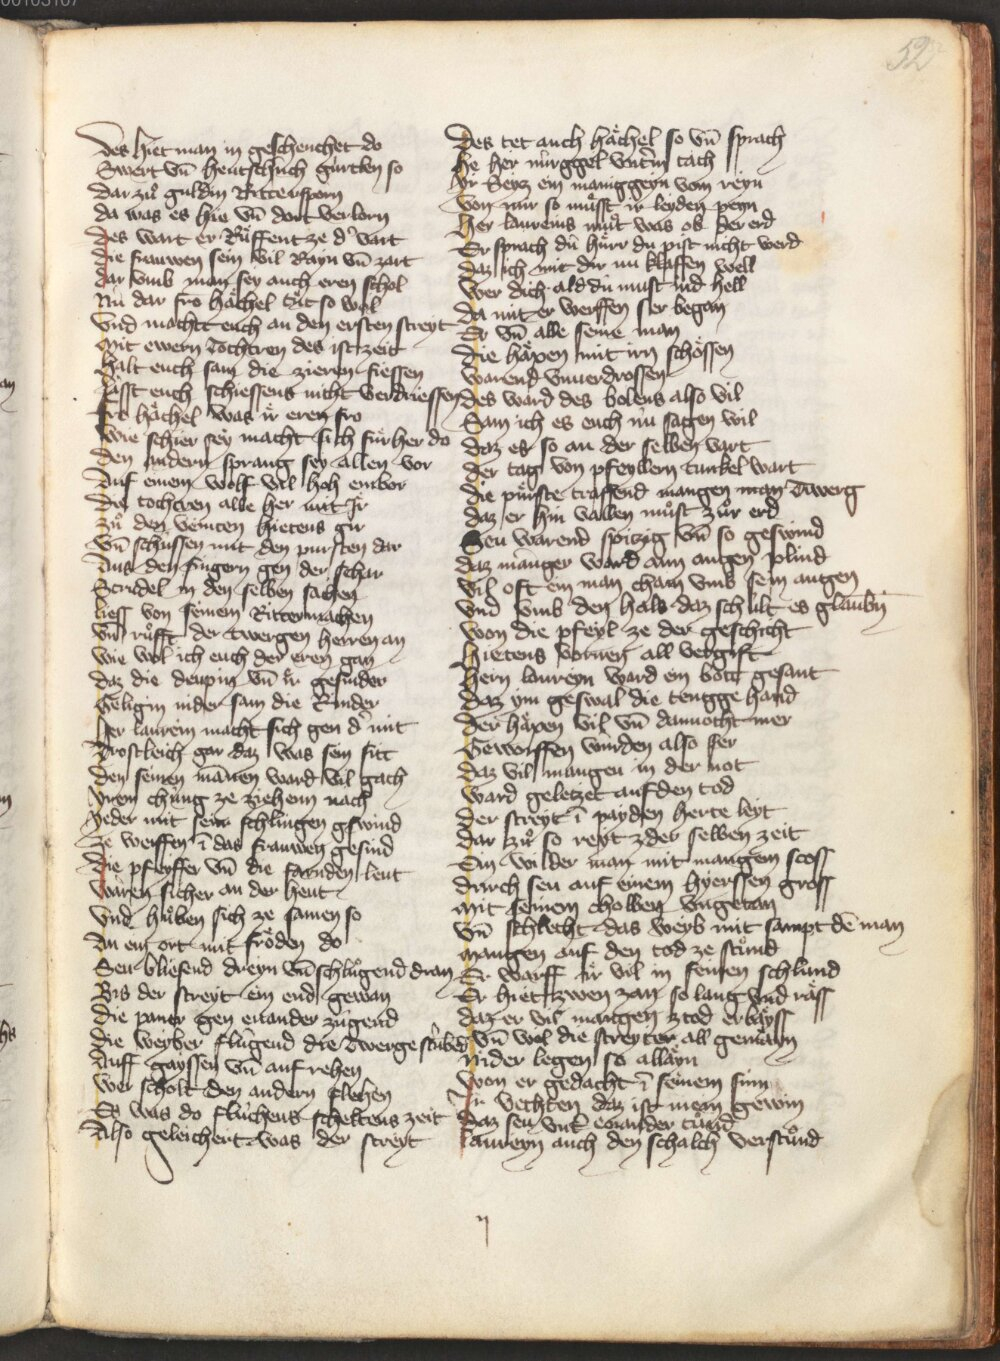 52
Des hiet man in geschenchet do
Swert vn̄ hentschuch gürtlen so
Dar zů guldin Rittersporn
Da was es hie vn̄ dort verlorn
Des wart er Rüffent ze d' vart
Die frawen sein vil Rayn vn̄ zart
Dar vmb man sey auch eren schol
Nu dar fro Hächel tůt so wol
Vnd macht euch an den ersten streyt
Mit ewern Tochtren des ist zeit
Halt euch sam die zieren siessen
Lässt euch schiessens nicht verdriessen
Fro hächel was ir eren fro
Wie schier sey macht sich fürher do
Den andern sprang sey allen vor
Auf einem wolf vil hoh enbor
Die tochtren alle her mit Ir
Zů den veinten hietens gir
Vn̄ schussen mit den pursten dar
Aus den fingern gen der schar
Scrudel in den selben sachen
Liess von seinem Rittermachen
Vn̄ rüfft der twergen herren an
Wie wol ich euch der eren gan
Daz die deupin vn̄ ir gesinder
Geligin nider sam die Rinder
Her laurein macht sich gen d' mit
Trostleich gar daz was sein sitt
Den seinen mannen ward vil gach
Irem chüng ze ziehenn nach
Yeder mit seinr schlingen gswind
Ze werffen ī das frauwen gesind
Die pfeyffer vn̄ die farnden leut
Waren sicher an der heut
Vnd hüben sich ze samen so
An ein ort mit fröden do
Seu bliesend dreyn vn̄ schlügend dran
Bis der streyt ein end gewan
Die paner gen enander zugend
Die weyber flugend die Twerge stubend
Auff gayssen vn̄ auf rehen
Wer scholt den andern flehen
Es was do fluchens scheltens zeit
Also geleichert was der streyt
Des tet auch hächel so vn̄ sprach
He her nürggel vntm tach
Ir Seyz ein manigzeyn vom reyn
Von mir so müsst ir leyden peyn
Her laureins müt was ob der erd
Er sprach du hürr du pist nicht werd
Daz ich mit dir nu klaffen well
Wer dich ald du must ind hell
Da mit er werffen ser began
Er vn̄ alle seine man
Die häxen mit irn schössen
Warend vnuerdrossen
Des ward des bolens also vil
Sam ich es euch nu sagen wil
Daz es so an der selben vart
Der tag von pfeylen tunkel wart
Die pürste traffend mangen man Twerg
Daz er hin vallen müst zůr erd
Seu warend spitzig vn̄ so geswind
Daz manger ward an augen plind
Vil oft ein man cham vmb sein augen
Vnd vmb den hals daz schült es glauben
Won die pfeyl ze der geschicht
Hietens vornen all vergift
Hern laureyn ward ein bott gesant
Daz ym geswal die tengge hand
Der häxen vil vn̄ dannocht mer
Geworffen wurden also ser
Daz vil mangen in der not
Ward geletzet auf den tod
Der streyt ī payden herte leyt
Dar zů so reyt zder selben zeit
Ein wilder man mit mangem stoss
Durch seu auf einem hyerssen gross
Mit seinem cholben vngetan
Vn̄ schlecht das weyb mit sampt dē man
Mangen auf den tod ze stund
Er warff ir vil in seinen schlund
Er hiet zwen zan so lang vnd räss
Daz er vil mangen ztod erbäyss
Vn̄ wol die streyter all gemäin
Nider legen so alläyn
Won er gedacht ī seinem sinn
Ir vechten daz ist mein gewin
Daz seu vnt' enander tünd
Laureyn auch den schalch verstünd